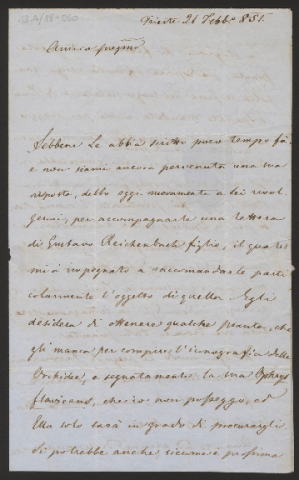 Trieste 21 Febb.º 851.
Amico pregmo
Sebbene Le abbia scritto poco tempo fà,
e non siami ancora pervenuta una sua
risposta, debbo oggi nuovamente a Lei rivol
germi, per accompagnarle una lettera
di Gustavo Reichenbach figlio, il quale
mi à impegnato a raccomandarle parti
colarmente l'oggetto di quella. Egli
desidera di ottenere qualche pianta, che
gli manca per compire l'iconografia delle
Orchidee, e segnatamente la sua Ophrys
flavicans, che io non posseggo, ed
Ella solo sarà in grado di procurargli.
Si potrebbe anche, siccome è prossima